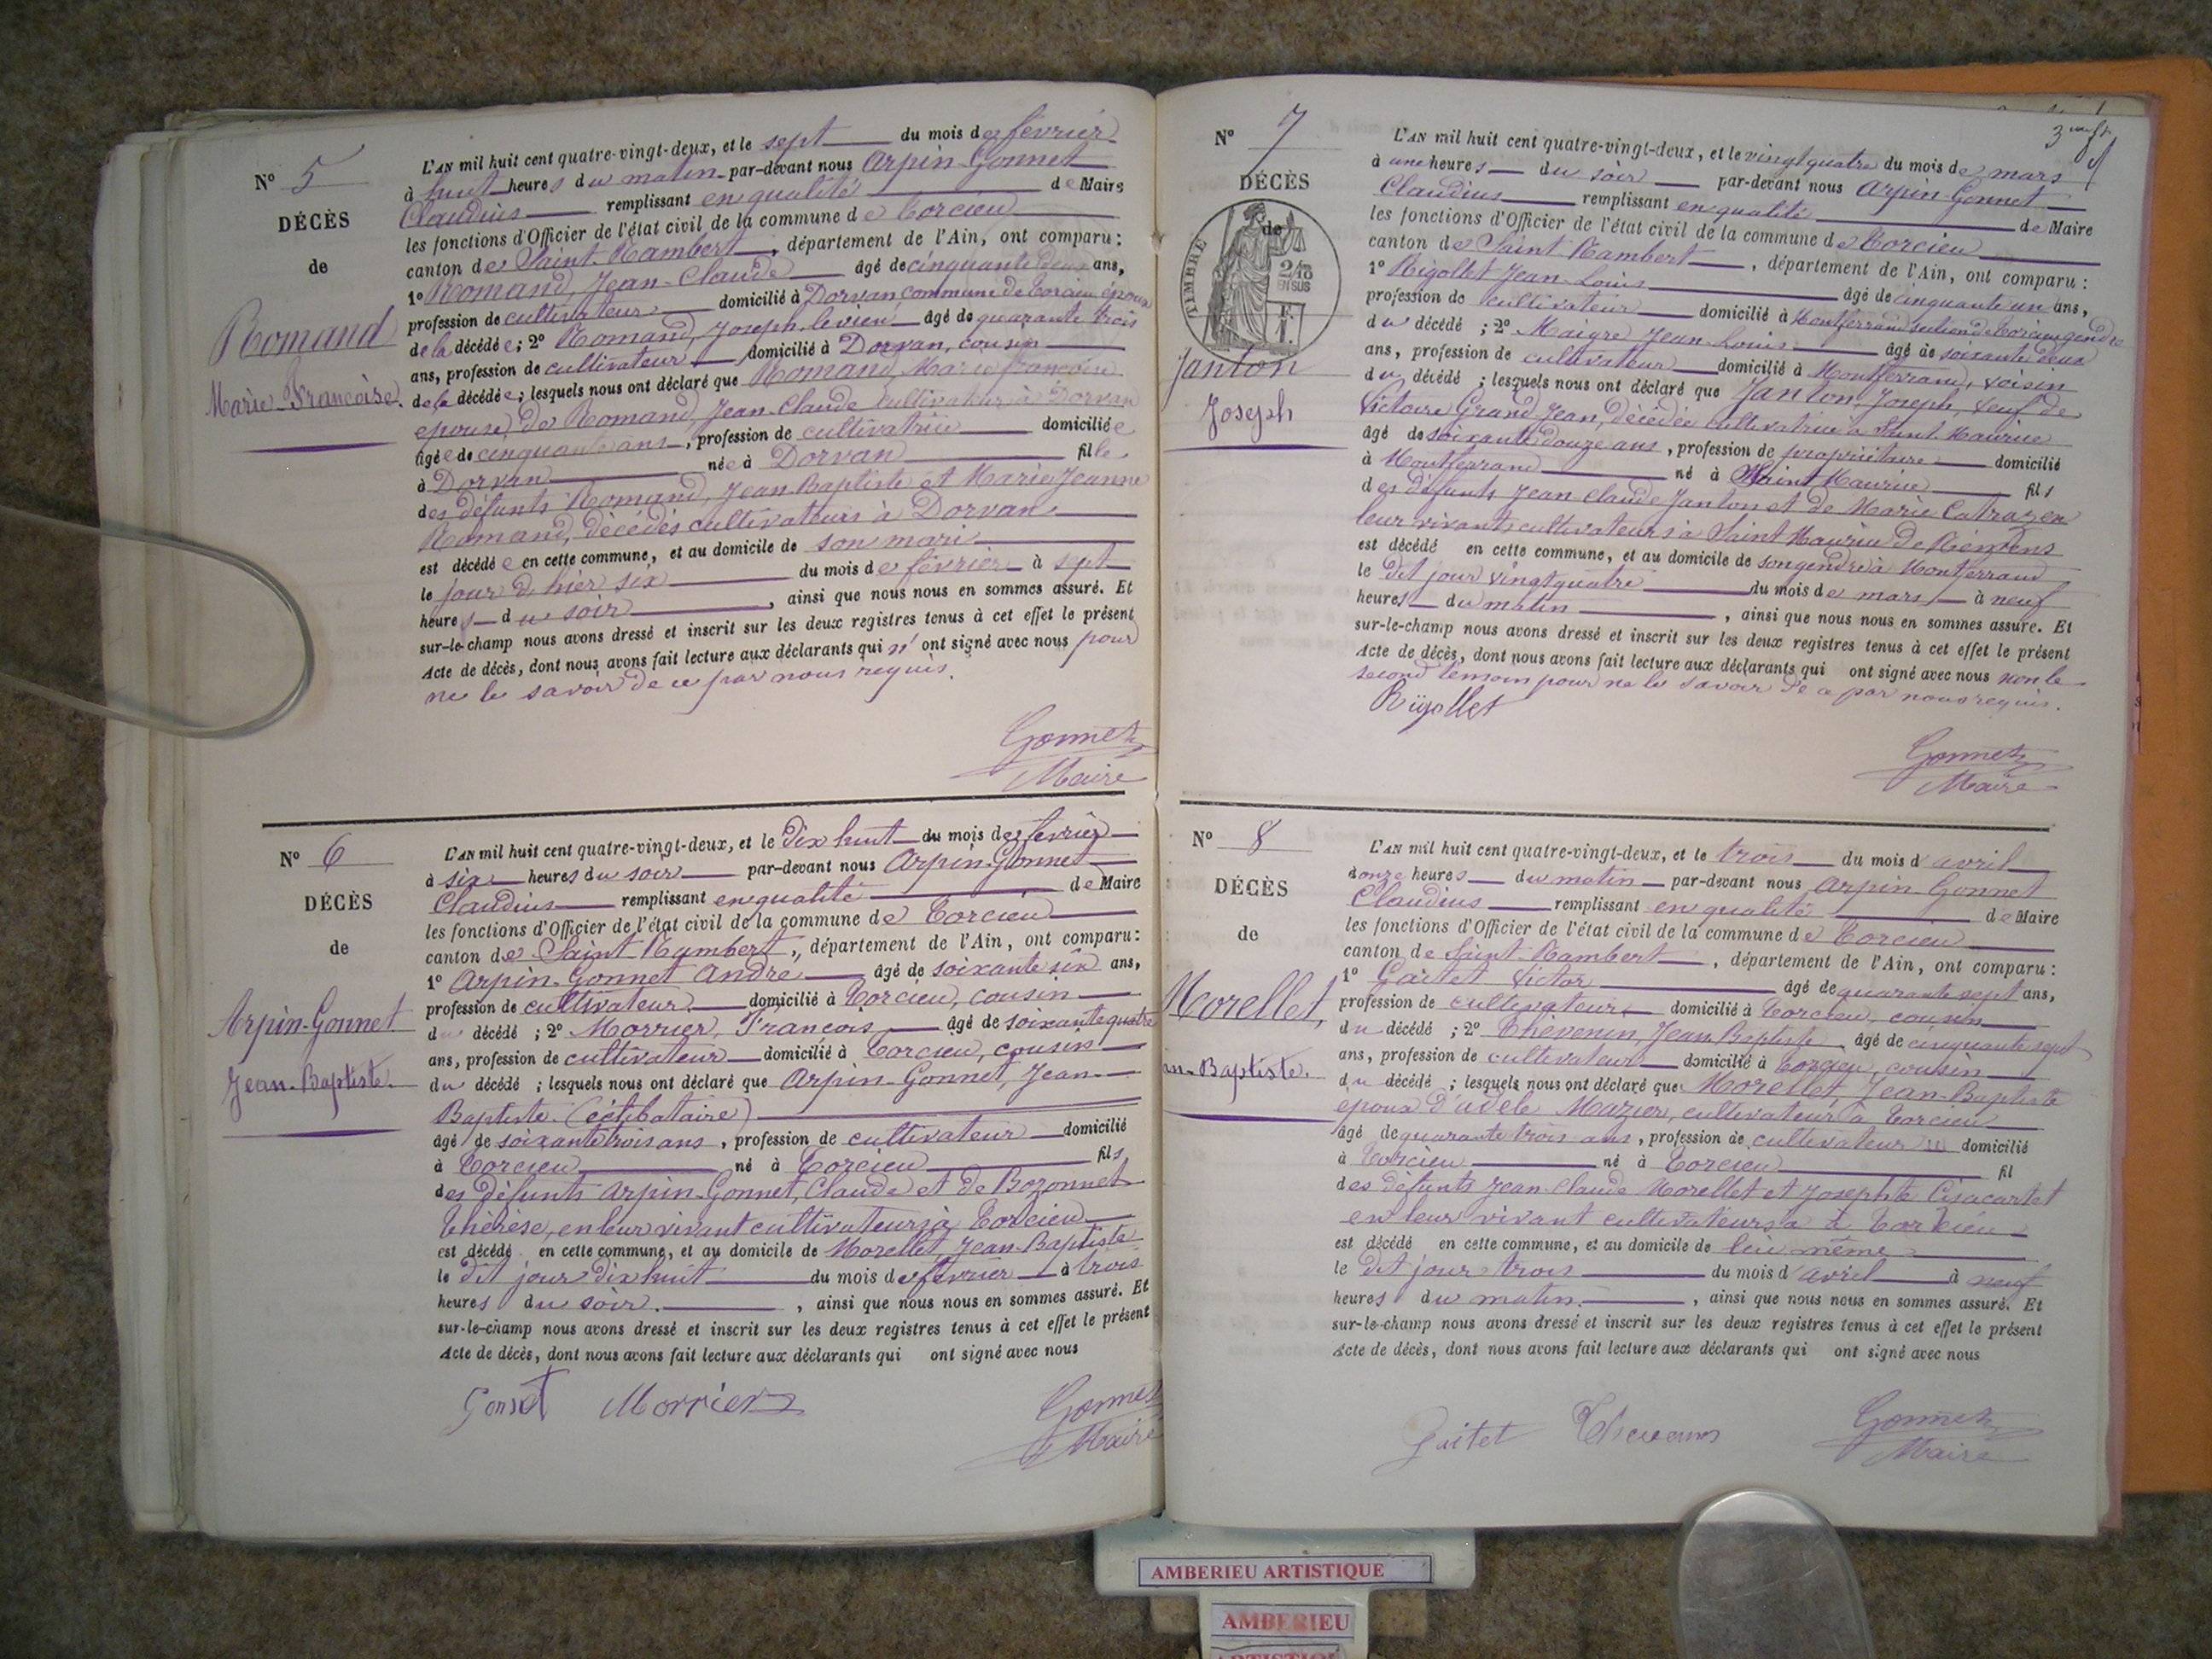 N° 5
DÉCÈS
de
Romand
Marie-Françoise.
L'AN mil huit cent quatre-vingt-deux, et le sept du mois de février
à huit heures du matin par-devant nous Arpin-Gonnet
Claudius remplissant en qualité de Maire
les fonctions d'Officier de l'état civil de la commune de Torcieu
canton de Saint-Rambert, département de l'Ain, ont comparu:
1° Romand, Jean-Claude âgé de cinquante deux ans,
profession de cultivateur domicilié à Dorvan, commune de Torcieu, époux
de la décédée; 2° Romand, Joseph, le vieu âgé de quarante trois
ans, profession de cultivateur domicilié à Dorvan, cousin
de la décédée; lesquels nous ont déclaré que Romand, Marie françoise
epouse de Romand, Jean-Claude cultivateur à Dorvan
âgée de cinquante ans, profession de cultivatrice domiciliée
à Dorvan née à Dorvan fille
des défunts Romand, Jean-Baptiste et Marie Jeanne
Romand, décédés cultivateurs à Dorvan
est décédée en cette commune, et au domicile de son mari
le jour d'hier six du mois de février à sept
heures du soir, ainsi que nous nous en sommes assuré. Et
sur-le-champ nous avons dressé et inscrit sur les deux registres tenus à cet effet le présent
Acte de décès, dont nous avons fait lecture aux déclarants qui n'ont signé avec nous pour
ne le savoir de ce par nous requis.
Gonnet
Maire
N° 6
DÉCÈS
de
Arpin-Gonnet
Jean-Baptiste.
L'AN mil huit cent quatre-vingt-deux, et le dix huit du mois de février
à six heures du soir par-devant nous Arpin-Gonnet
Claudius remplissant en qualité de Maire
les fonctions d'Officier de l'état civil de la commune de Torcieu
canton de Saint Rambert, département de l'Ain, ont comparu:
1° Arpin-Gonnet André âgé de soixante six ans,
profession de cultivateur domicilié à Torcieu, cousin
du décédé; 2° Morrier, François âgé de soixante quatre
ans, profession de cultivateur domicilié à Torcieu, cousin
du décédé; lesquels nous ont déclaré que Arpin-Gonnet, Jean
Baptiste. (célibataire)
âgé de soixante trois ans, profession de cultivateur domicilié
à Torcieu né à Torcieu fils
des défunts Arpin-Gonnet, Claude et de Bozonnet
Thérèse, en leur vivant cultivateurs à Torcieu
est décédé en cette commune, et au domicile de Morellet, Jean-Baptiste
le dit jour dix huit du mois de février à trois
heures du soir., ainsi que nous nous en sommes assuré. Et
sur-le-champ nous avons dressé et inscrit sur les deux registres tenus à cet effet le présent
Acte de décès, dont nous avons fait lecture aux déclarants qui ont signé avec nous
Morrier
Gonnet
Maire
N° 7
DÉCÈS
de
TIMBRE
2/10
EN SUS
Janton
Joseph
L'AN mil huit cent quatre-vingt-deux, et le vingt quatre du mois de mars
à une heures du soir par-devant nous Arpin-Gonnet
Claudius remplissant en qualité de Maire
les fonctions d'Officier de l'état civil de la commune de Torcieu
canton de Saint-Rambert, département de l'Ain, ont comparu:
1° Rigollet Jean-Louis âgé de cinquante un ans,
profession de cultivateur domicilié à Montferrand section de Torcieu gendre
du décédé; 2° Maigre Jean Louis âgé de soixante deux
ans, profession de cultivateur domicilié à Montferrand, voisin
du décédé; lesquels nous ont déclaré que Janton Joseph, veuf de
Victoire Grand Jean, décédée cultivatrice à Saint-Maurice
âgé de soixante douze ans, profession de propriétaire domicilié
à Montferrand né à Saint Maurice fils
des défunts Jean Claude Janton et de Marie
leur vivant cultivateurs à Saint Maurice de Rémens
est décédé en cette commune, et au domicile de son gendre à Montferrand
le dit jour vingt quatre du mois de mars à neuf
heures du matin, ainsi que nous nous en sommes assuré. Et
sur-le-champ nous avons dressé et inscrit sur les deux registres tenus à cet effet le présent
Acte de décès, dont nous avons fait lecture aux déclarants qui ont signé avec nous non le
second témoin pour ne le savoir de ce par nous requis.
Rigollet
Gonnet
Maire
N° 8
DÉCÈS
de
Morellet,
an-Baptiste.
L'AN mil huit cent quatre-vingt-deux, et le trois du mois d'avril
à onze heures du matin par-devant nous Arpin Gonnet
Claudius remplissant en qualité de Maire
les fonctions d'Officier de l'état civil de la commune de Torcieu
canton de Saint-Rambert, département de l'Ain, ont comparu:
1° Gaitet Victor âgé de quarante sept ans,
profession de cultivateur domicilié à Torcieu, cousin
du décédé; 2° Thevenin, Jean Baptiste âgé de cinquante sept
ans, profession de cultivateur domicilié à Torcieu, cousin
du décédé; lesquels nous ont déclaré que Morellet, Jean-Baptiste
epoux d'adele Mazier, cultivateur à Torcieu
âgé de quarante trois ans, profession de cultivateur domicilié
à Torcieu né à Torcieu fil
des défunts Jean-Claude Morellet et Josephte
en leur vivant cultivateurs à Torcieu
est décédé en cette commune, et au domicile de lui même
le dit jour trois du mois d'avril à neuf
heures du matin., ainsi que nous nous en sommes assuré. Et
sur-le-champ nous avons dressé et inscrit sur les deux registres tenus à cet effet le présent
Acte de décès, dont nous avons fait lecture aux déclarants qui ont signé avec nous
Gaitet
Gonnet
Maire
AMBERIEU ARTISTIQUE
AMBERIEU
ARTISTIQUE